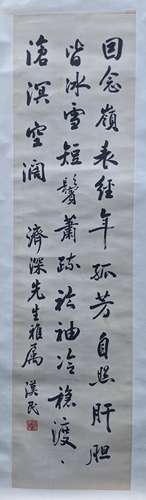 回念嶺表經年孤芳自照肝胆
皆冰雪短鬢蕭疏衿袖冷穩渡、
滄溟空闊 濟深先生雅屬 漢民